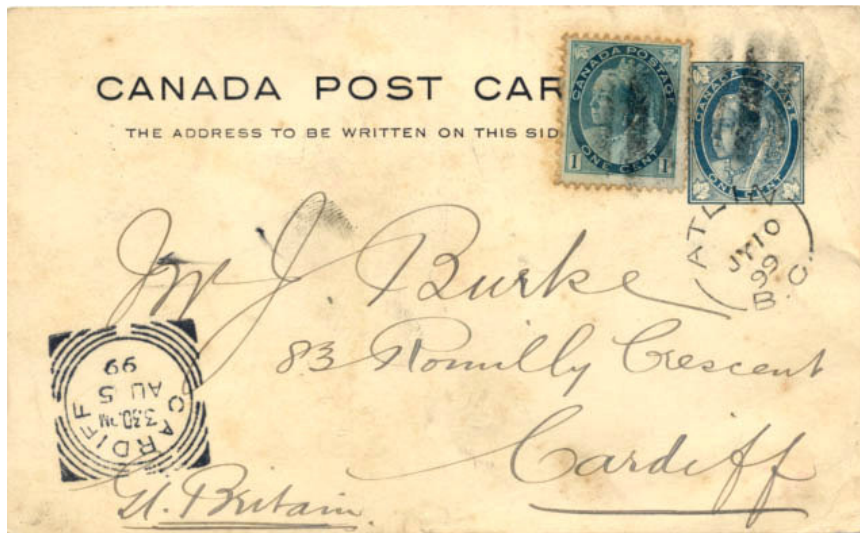 CANADA POST CAR
THE ADDRESS TO BE WRITTEN ON THIS SID
CANADA POSTAGE
1 ONE CENT 1
CANADA POSTAGE
ONE CENT
ATLIN
JY 10
99
B.C.
Mr J. Burke
83 Romilly Crescent
Cardiff
Gt. Britain
CARDIFF
3.30 PM
AU 5
99